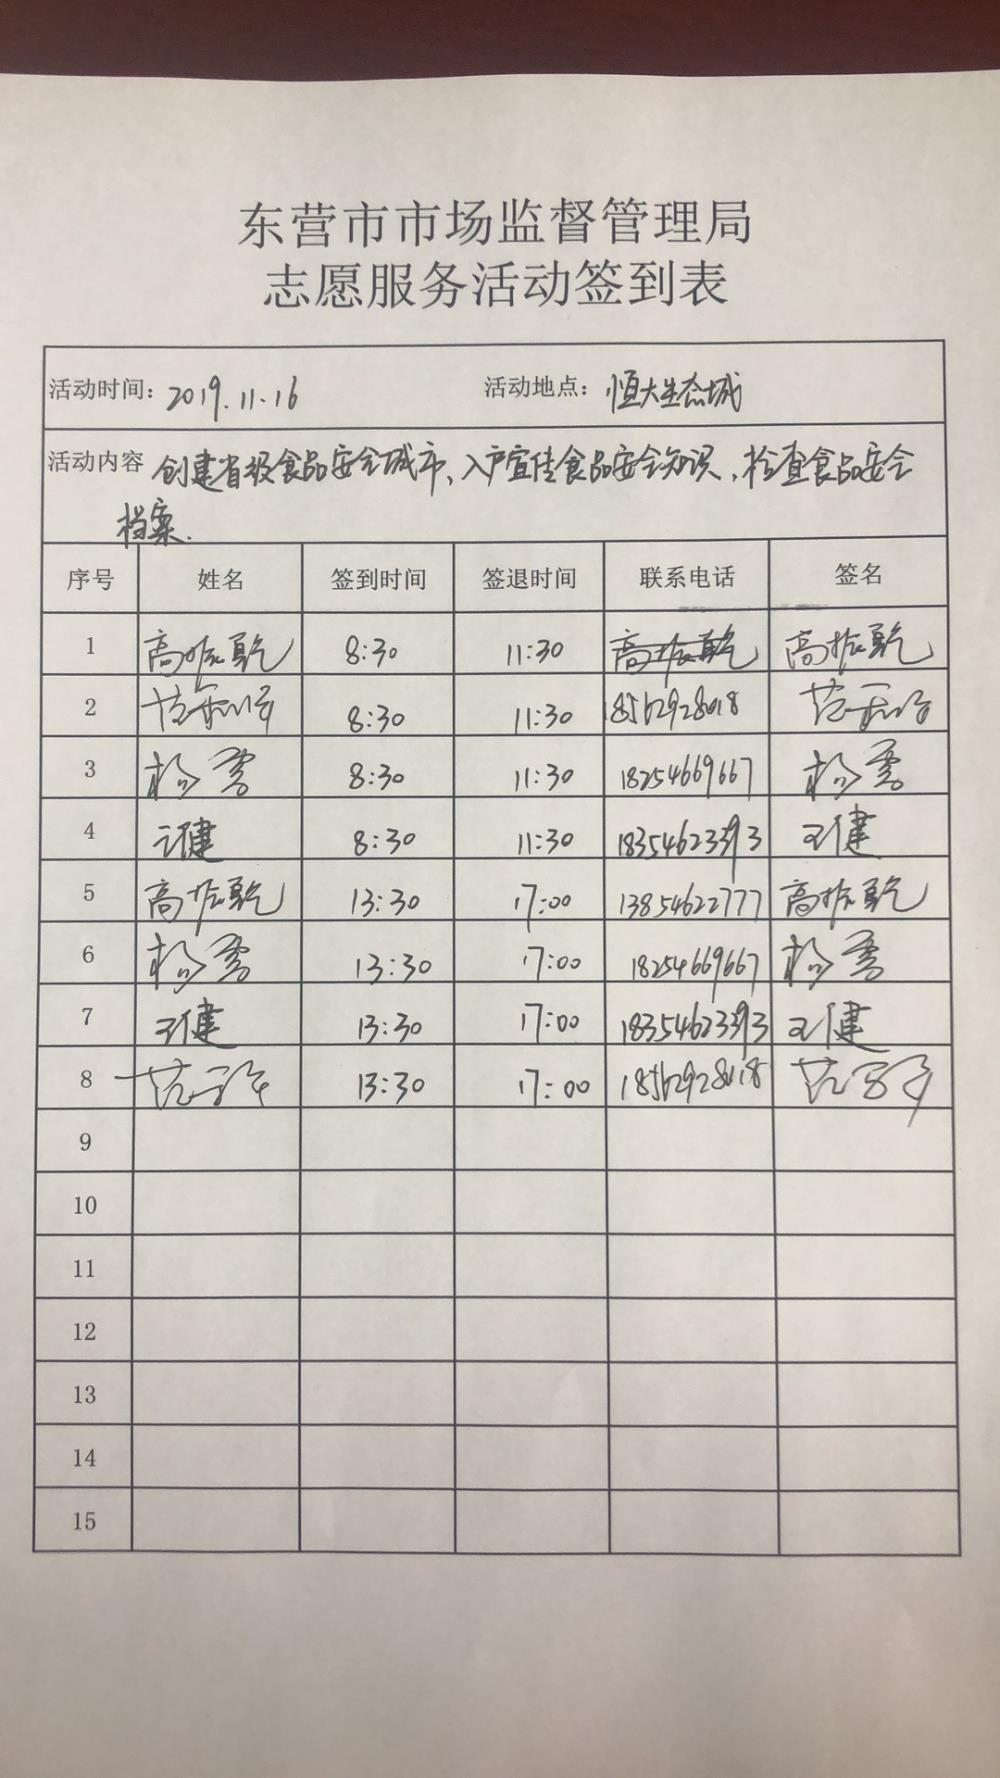 东营市市场监督管理局
志愿服务活动签到表
活动时间：2019.11.16 活动地点：恒大生态城
活动内容 创建省级食品安全城市、入户宣传食品安全知识、检查食品安全
档案.
序号 姓名 签到时间 签退时间 联系电话 签名
1 高振乾 8:30 11:30 高振乾 高振乾
2 8:30 11:30 18562928018
3 杨雪 8:30 11:30 18254669667 杨雪
4 王健 8:30 11:30 18354623393 王健
5 高振乾 13:30 17:00 13854622777 高振乾
6 杨雪 13:30 17:00 18254669667 杨雪
7 王健 13:30 17:00 18354623393 王健
8 13:30 17:00 18562928018
9
10
11
12
13
14
15